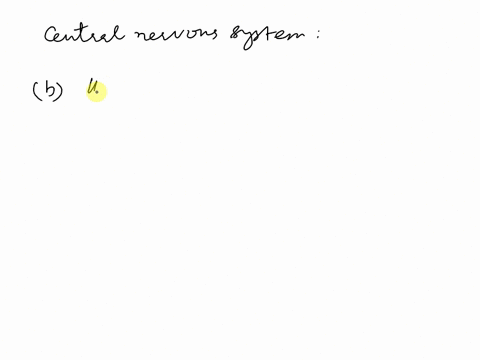 Central nervous system :
(b)